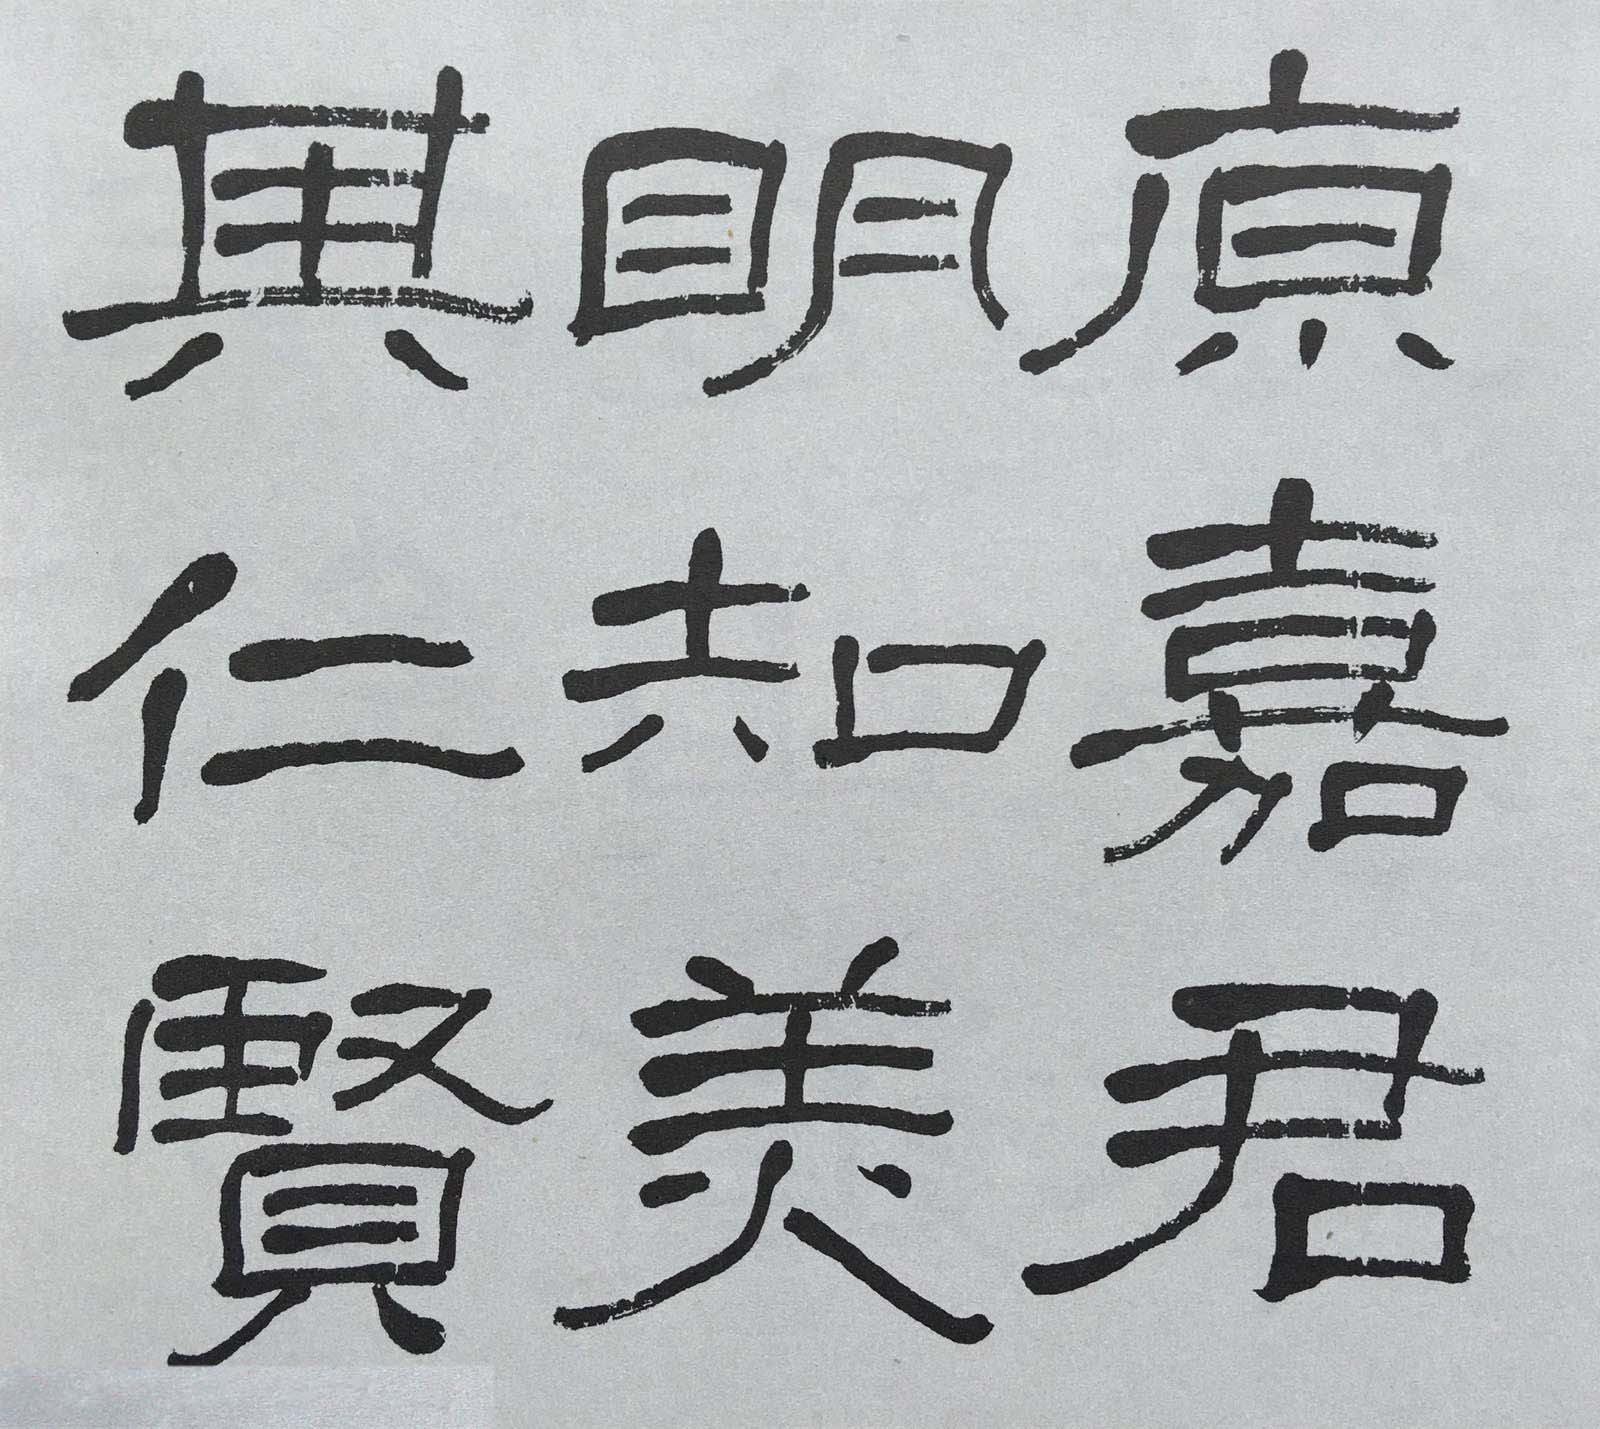 原嘉君
明知美
其仁賢